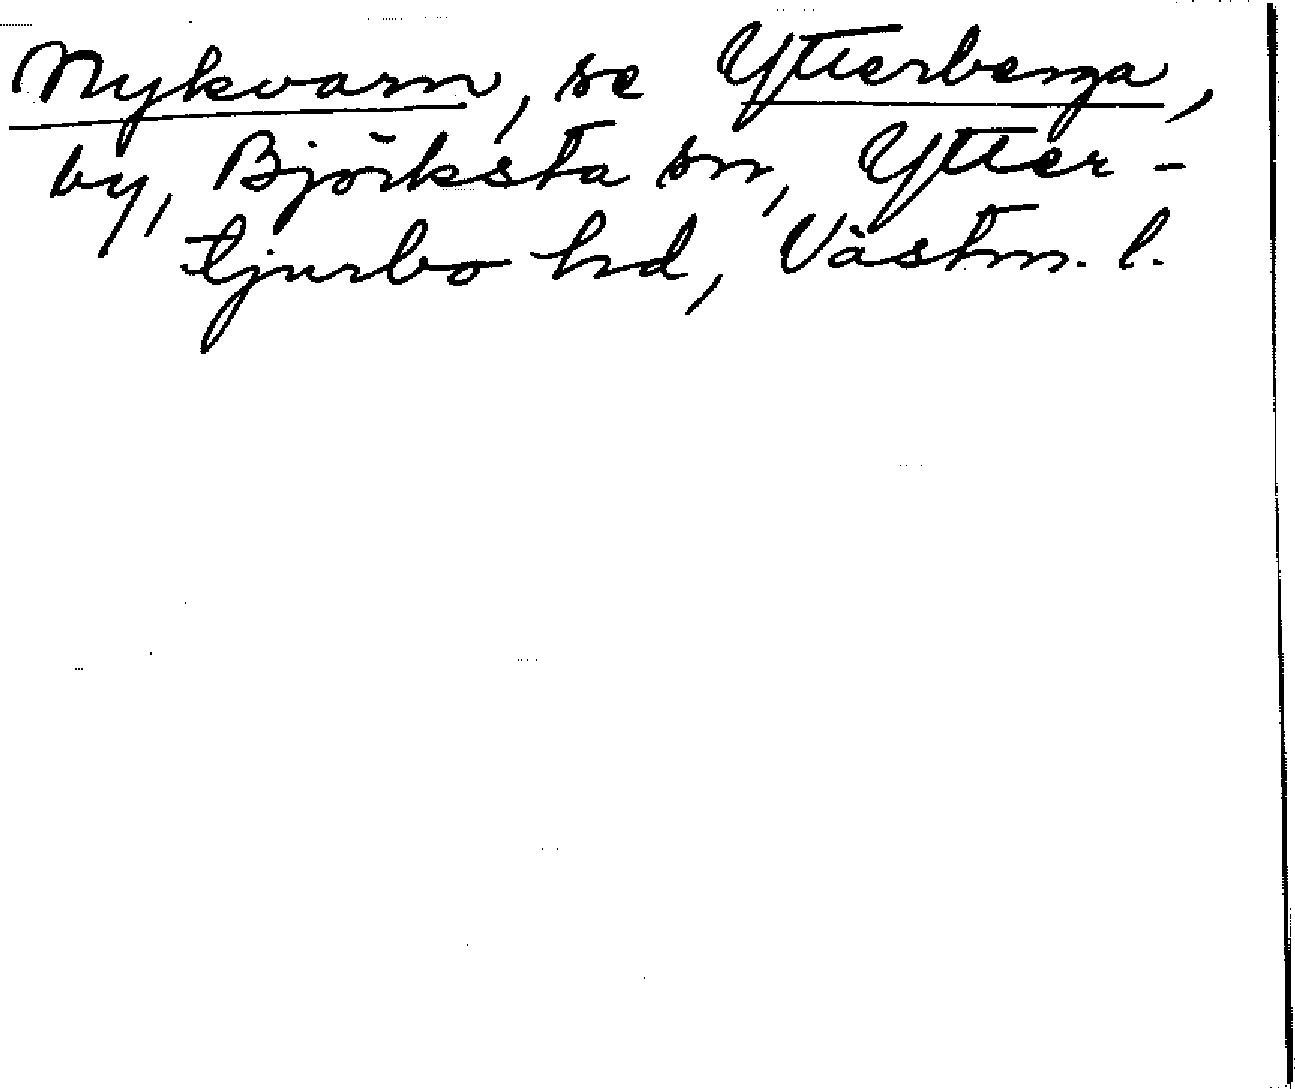 Nykvarn, se Ytterberga,
by, Björksta sn, Ytter-
tjurbo hd, Västm. l.